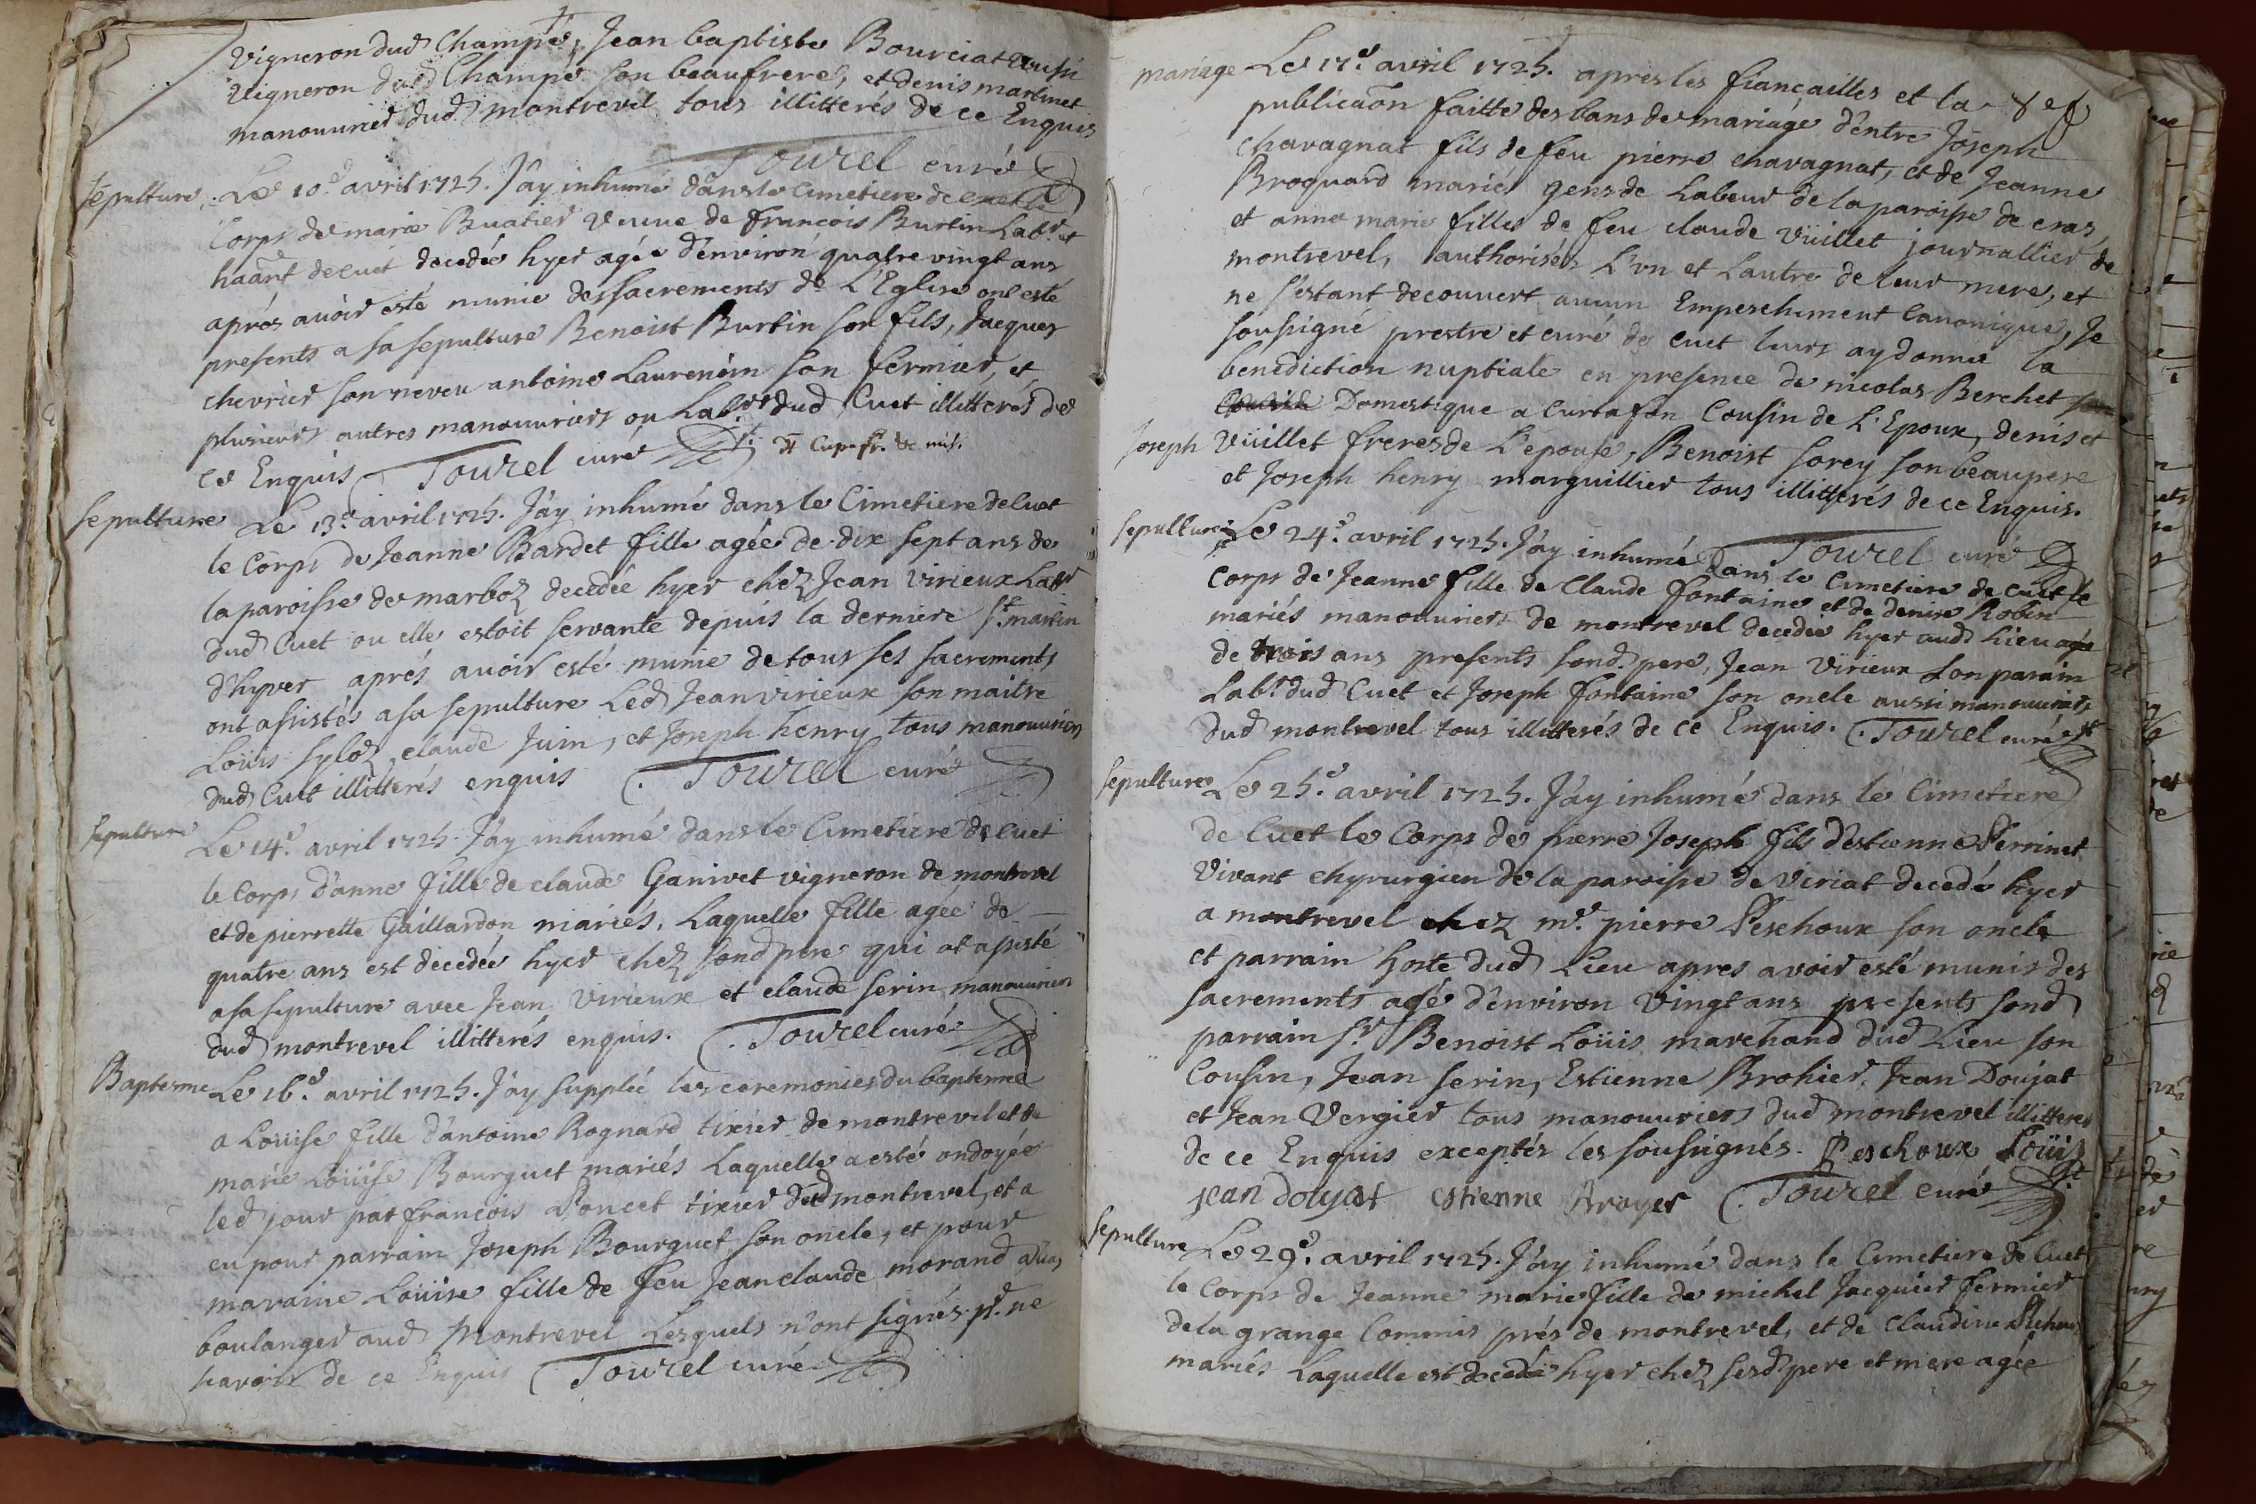 vigneron dud Champé, Jean baptiste Bourciat aussi
vigneron dud Champé son beaufrere, et denis martinet
manouurier dud montrevel tous illitterés de ce Enquis
Tourel curé
sepulture. Le 10e avril 1725. J'ay inhumé dans le Cimetiere de cuet le
Corps de marie Buatier veuue de francois Burtin Labr et
haant de cuet decedée hyer agée d'environ quatre vingt ans
aprés auoir esté munie des sacrements de L'Eglise ont esté
presents a sa sepulture Benoist Burtin son fils, Jacques
chevrier son neveu antoine Laurencin son fermier, et
plusieurs autres manouuriers ou Labrs dud Cuet illitterés de
ce Enquis Tourel curé
sepulture Le 13e avril 1725. J'ay inhumé dans le Cimetiere de Cuet
le Corps de Jeanne Bardet fille agée de dix sept ans de
la paroisse de marboz decedée hyer chez Jean virieux Labr
dud Cuet ou elle estoit servante depuis la derniere st martin
d'hyver aprés auoir esté munie de tous ses sacrements
ont assisté a sa sepulture Led Jean virieux son maitre
Loüis syloz, claude Juin, et Joseph henry tous manouuriers
dud Cuet illitterés enquis Tourel curé
sepulture Le 14e avril 1725. J'ay inhumé dans le Cimetiere de cuet
le Corps d'anne fille de claude Ganivet vigneron de montrevel
et de pierrette Gaillardon mariés, Laquelle fille agée de
quatre ans est decedée hyer chez sond pere qui at assisté
a sa sepulture avec Jean virieux et claude serin manouuriers
dud montrevel illitterés enquis. Tourel curé
Baptesme Le 16e avril 1725. J'ay supplée les ceremonies du baptesme
a Loüise fille d'antoine Rognard tixier de montrevel et de
marie Loüise Bourguet mariés Laquelle a esté ondoyée
led jour par francois Poncet tixier dud montrevel, et a
eu pour parrain Joseph Bourguet son oncle, et pour
maraine Loüise fille de feu Jean claude morand
boulanger aud Montrevel Lesquels n'ont signés pr. ne
scavoir de ce Enquis Tourel curé
mariage Le 17e avril 1725. apres les fiançailles et la
publicaon faitte des bans de mariage d'entre Joseph
chavagnat fils de feu pierre chavagnat, et de Jeanne
Broquard mariés gens de Labeur de la paroisse de cras,
et anne marie fille de feu claude vüillet journallier de
montrevel, authorisés L'vn et Lautre de leur mere, et
ne s'estant decouvert aucun Empeschement Canonique, Je
soussigné prestre et curé de cuet leurs ay donné la
benediction nuptiale en presence de nicolas Berchet
Domestique a Curtafon Cousin de L'Epoux, denis et
Joseph vüillet freres de L'épouse, Benoist sorey son beaupere
et Joseph henry marguillier tous illitterés de ce Enquis.
Tourel curé
sepulture Le 24e avril 1725. J'ay inhumé dans le Cimetiere de cuet le
Corps de Jeanne fille de Claude fontaine et de denise Robin
mariés manouuriers de montrevel decedée hyer aud Lieu agée
de trois ans presents sond pere, Jean virieux son parain
Labr dud Cuet et Joseph fontaine son oncle aussi manouurier,
dud montrevel tous illitterés de ce Enquis. Tourel curé
sepulture Le 25e avril 1725. J'ay inhumé dans le Cimetiere
de Cuet le Corps de pierre Joseph fils d'estienne Perrinet
vivant chyrurgien de la paroisse de viriat decedé hyer
a montrevel chez me pierre Peschoux son oncle
et parrain hoste dud Lieu apres avoir esté munis des
sacrements agé d'environ vingt ans presents sond
parrain sr Benoist Loüis marchand dud Lieu son
Cousin, Jean serin, Estienne Brohier, Jean Doujat
et Jean Vergier tous manouuriers dud montrevel illitterés
de ce Enquis exceptés les soussignés. Peschoux Loüis
jean doujat estienne broyer Tourel curé
sepulture Le 29e avril 1725. J'ay inhumé dans le Cimetiere de Cuet
le Corps de Jeanne marie fille de michel Jacquier fermier
de la grange Commis prés de montrevel, et de Claudine
mariés Laquelle est decedée hyer chez sesd pere et mere agée